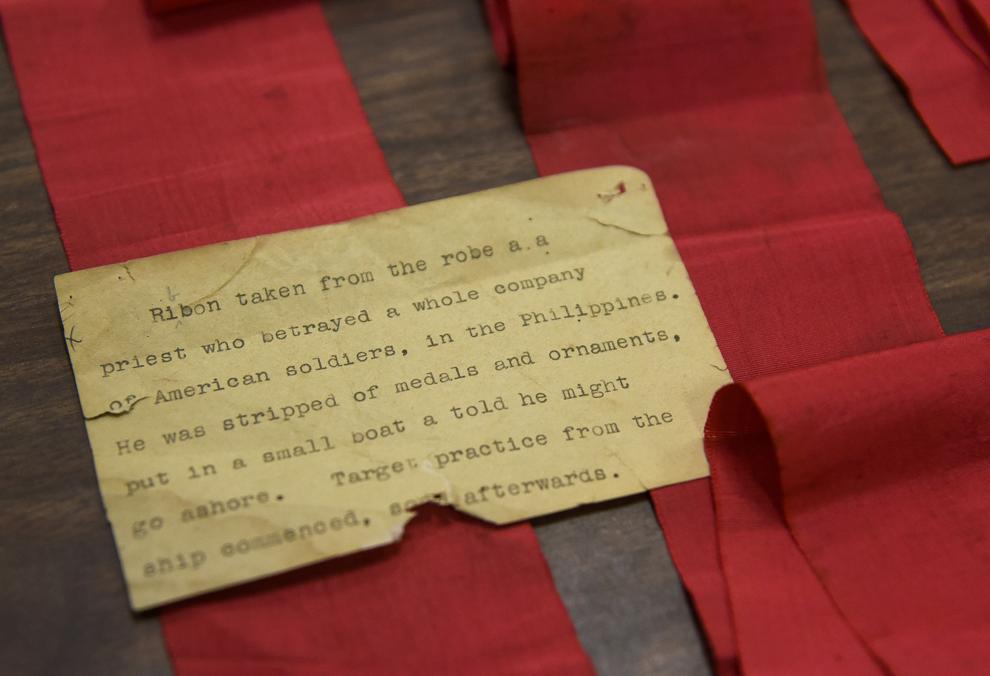 Ribon taken from the robe a.a
priest who betrayed a whole company
of American soldiers, in the Philippines.
He was stripped of medals and ornaments,
put in a small boat a told he might
go ashore. Target practice from the
ship commenced, soon afterwards.